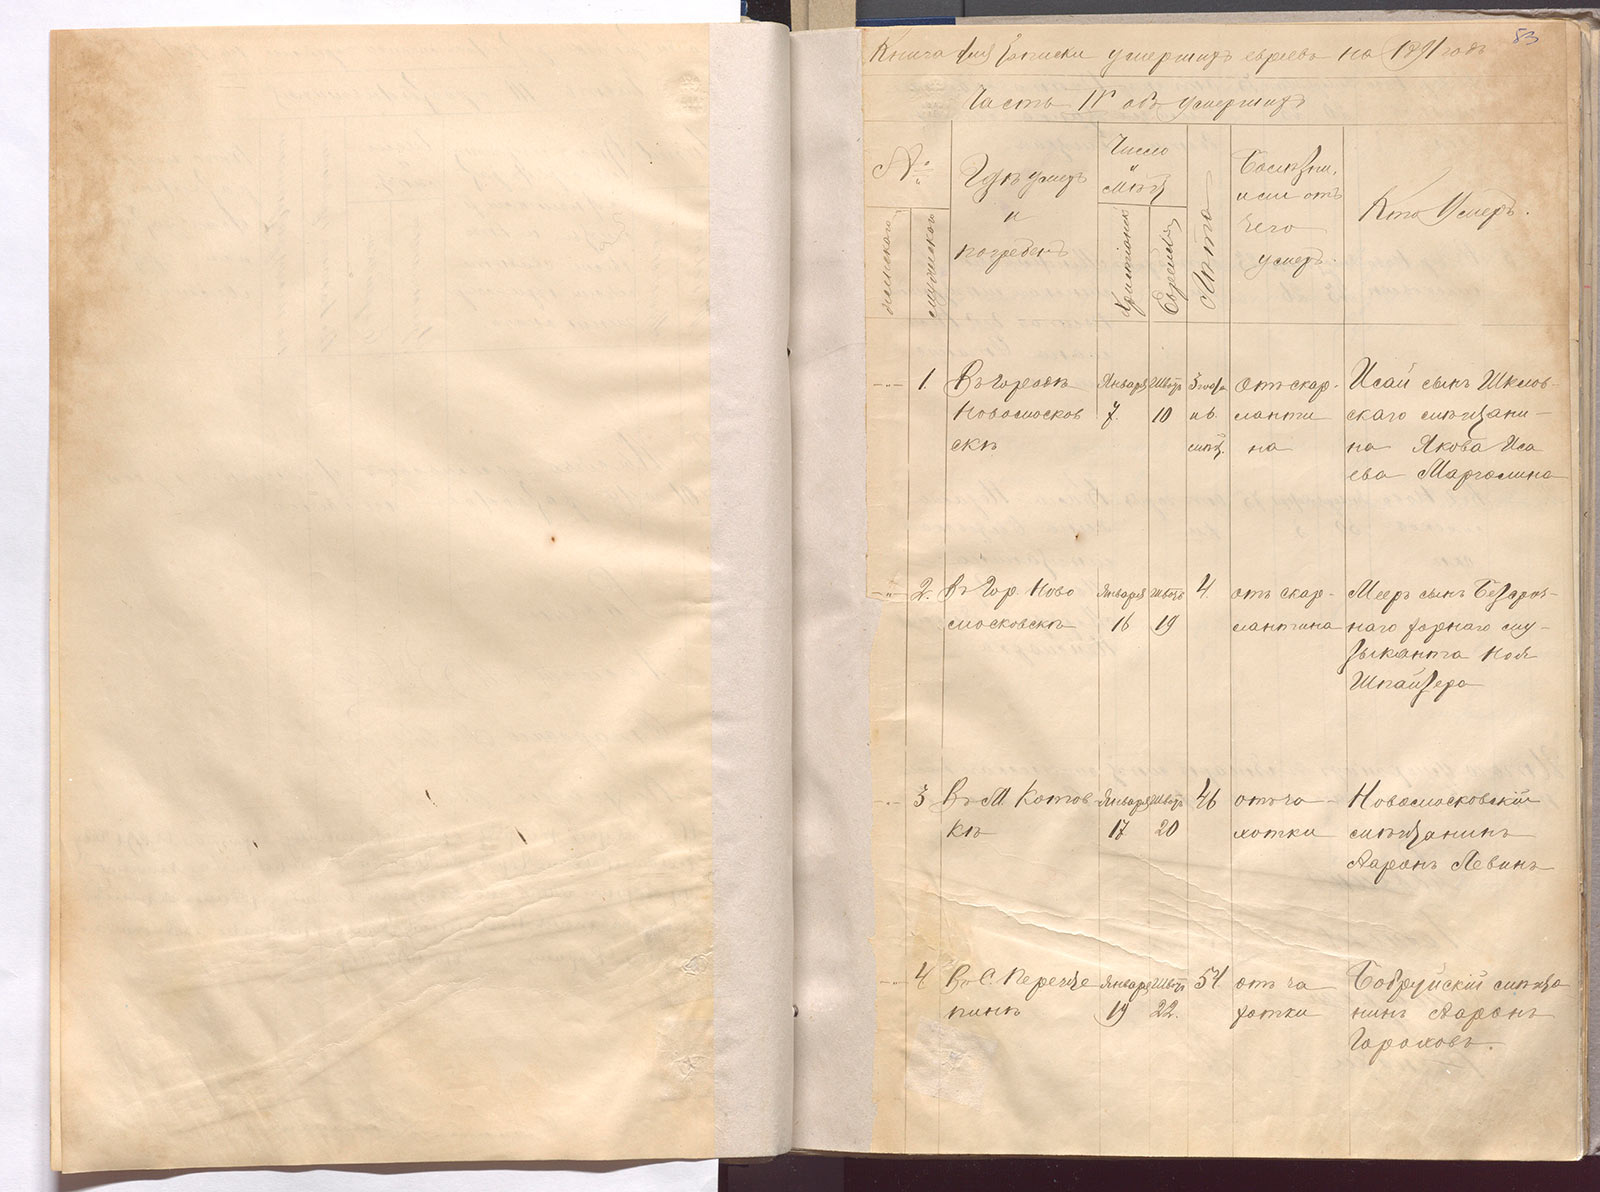 83
Книга для записки умершихъ евреевъ на 1891 годъ
Часть IV объ умершихъ
№
женскаго
мужескаго
Гдѣ умеръ
и
погребенъ
Число
и
мѣсяц
Христіанск
Еврейскій
Лѣта
Болѣзни,
или отъ
чего
умеръ.
Кто Умеръ.
1.
Въ Городѣ
Новомосков
скѣ
Января
7.
Швотъ
10
3 года
и 6.
мѣс.
отъ скар-
лантти
на
Исай сынъ Шклов-
скаго мѣщани-
на Якова Иса
ева Марголина
2.
Въ Гор. Ново
московскѣ
Января
16
Швотъ
19
4.
отъ скар-
лантина
Мееръ сынъ Безсроч-
наго горнаго му-
зыканта Ноя
Шпайзера
3
Въ М Котов
кѣ
Января
17
Швотъ
20
46
отъ ча-
хотки
Новомосковскій
мѣщанинъ
Ааронъ Левинъ
4.
Въ С. Переще
пинѣ
Января
19
Швотъ
22.
54
отъ ча
хотки
Бобруйскій мѣща
нинъ Ааронъ
Гороховъ.